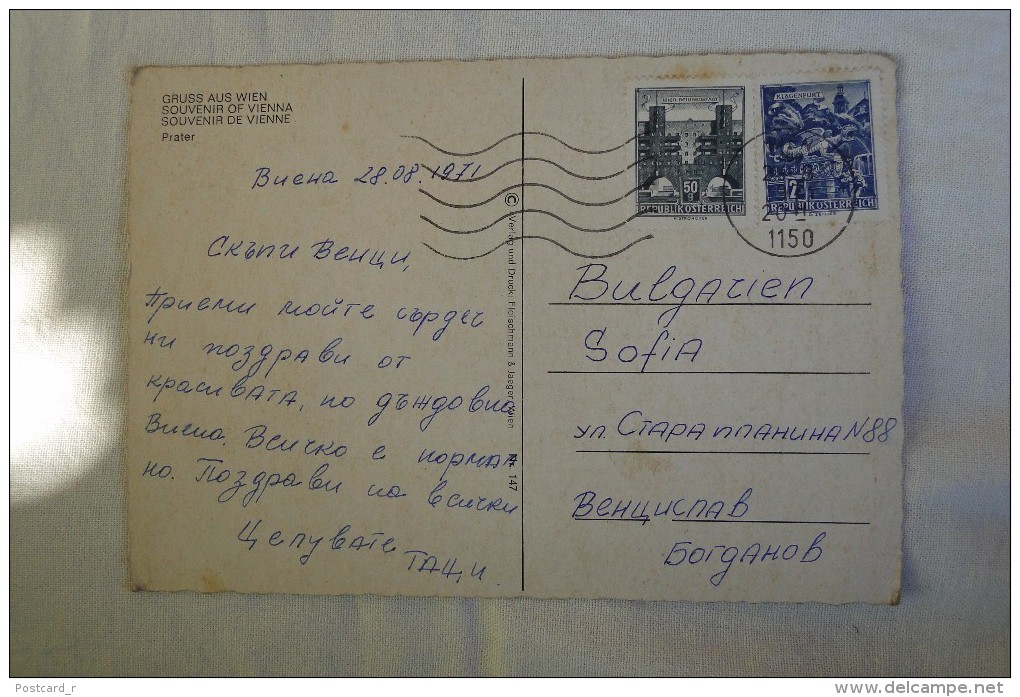 GRUSS AUS WIEN
SOUVENIR OF VIENNA
SOUVENIR DE VIENNE
Prater
Виена 28.08.1971
Скъпи Венци,
Приеми мойте сърдеч
ни поздрави от
красивата, но дъждовна
Виена. Всичко е нормал
но. Поздрави на всички
Целувате
ТАЦИ.
© Verlag und Druck: Fleischmann & Jaeger, Wien
Nr. 147
KLAGENFURT
50 g
REPUBLIK ÖSTERREICH
2
REPUBLIK ÖSTERREICH
1150
Bulgarien
Sofia
ул. Стара планина N88
Венцислав
Богданов
Postcard_r
delcampe.net